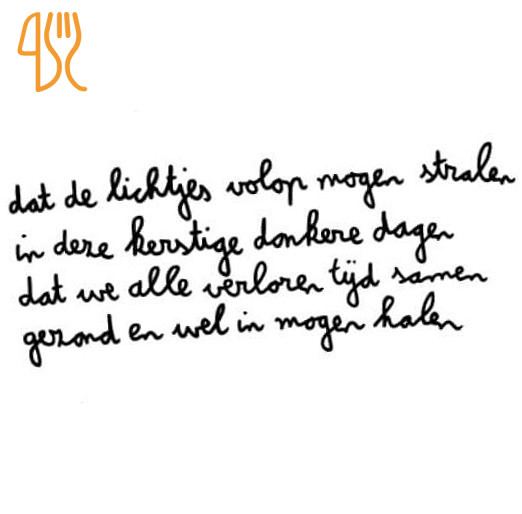 dat de lichtjes volop mogen stralen
in deze kerstige donkere dagen
dat we alle verloren tijd samen
gezond en wel in mogen halen